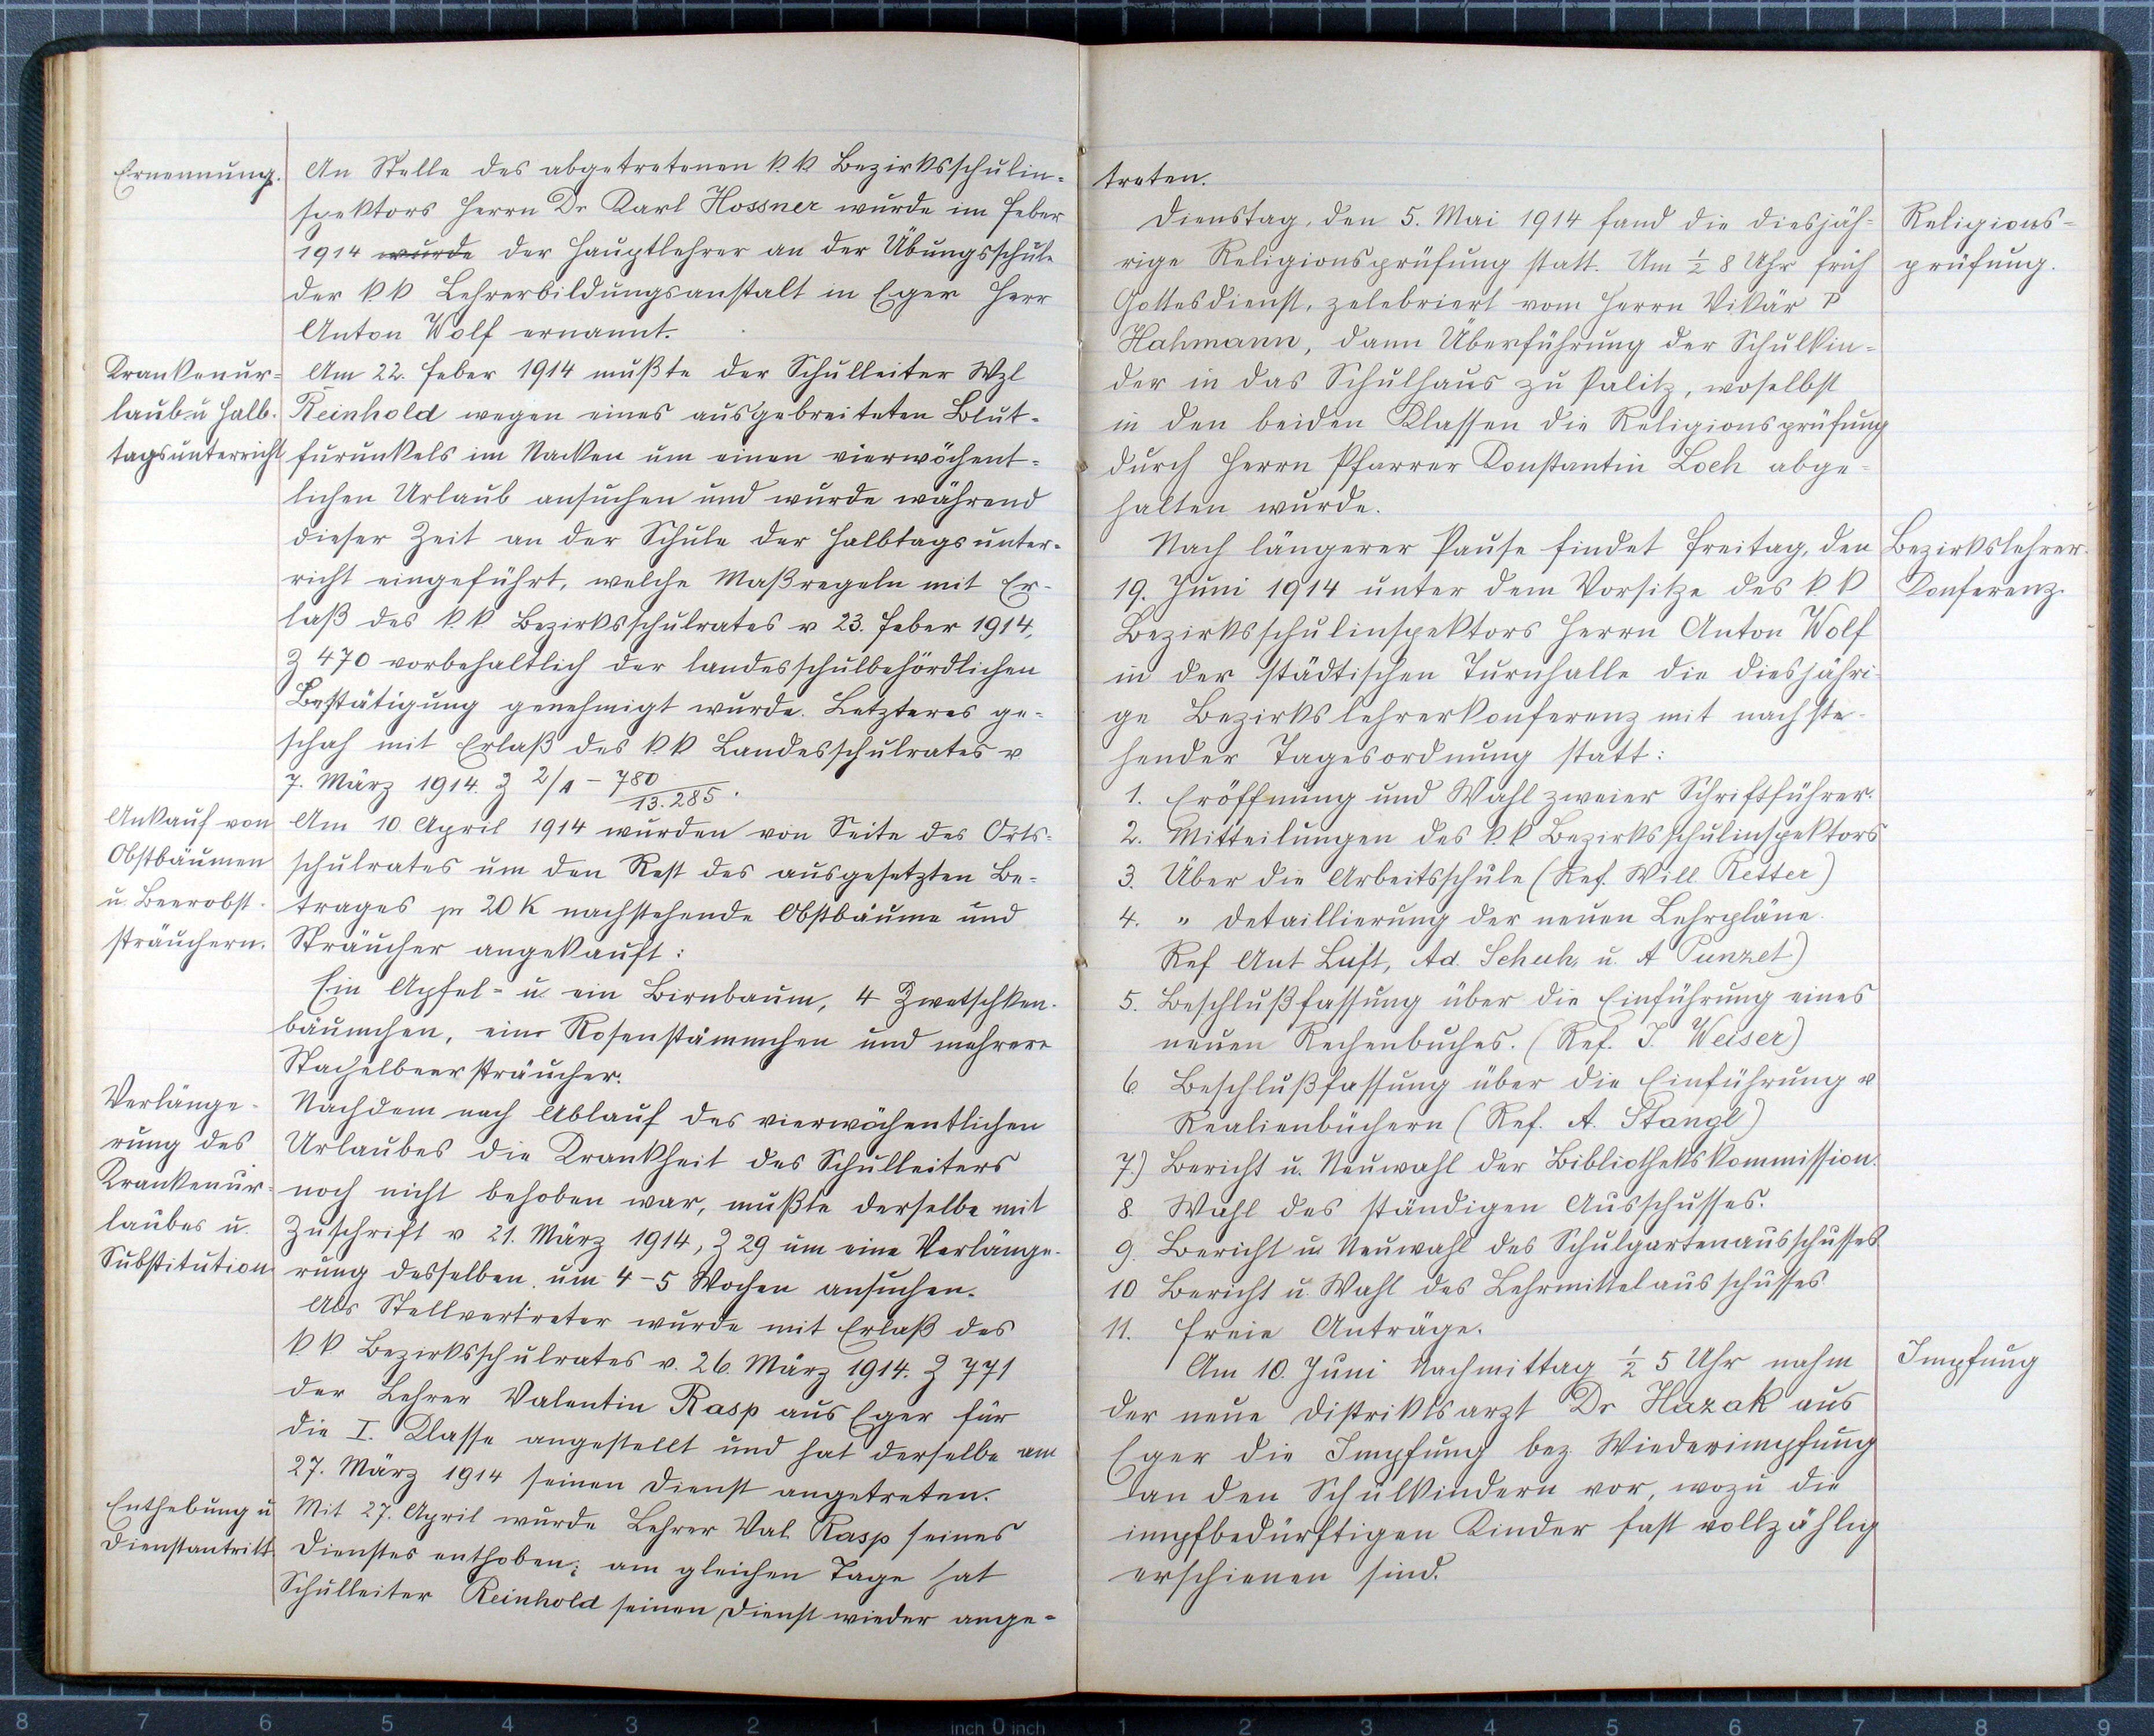 Ernennung.
An Stelle des abgetretenen k. k. Bezirksschulin-
spektors Herrn Dr Karl Hossner wurde im Feber
1914 wurde der Hauptlehrer an der Übungsschule
der k k Lehrerbildungsanstalt in Eger Herr
Anton Wolf ernannt.
Krankenur-
laub u Halb-
tagsunterricht
Am 22. Feber 1914 mußte der Schulleiter Wzl
Reinhold wegen eines ausgebreiteten Blut-
furunkels im Nacken um einen vierwöchent-
lichen Urlaub ansuchen und wurde während
dieser Zeit an der Schule der Halbtagsunter-
richt eingeführt, welche Maßregeln mit Er-
laß des k. k. Bezirksschulrates v 23. Feber 1914,
Z 470 vorbehaltlich der landesschulbehördlichen
Bestätigung genehmigt wurde. Letzteres ge-
schah mit Erlaß des k k Landesschulrates v
7. März 1914. Z 2/A - 780
13.285.
Ankauf von
Obstbäumen
u. Beerobst-
sträuchern.
Am 10 April 1914 wurden von Seite des Orts-
schulrates um den Rest des ausgesetzten Be-
trages pr 20 K nachstehende Obstbäume und
Sträucher angekauft:
Ein Apfel- u ein Birnbaum, 4 Zwetschken-
bäumchen, ein Rosenstämmchen und mehrere
Stachelbeersträucher.
Verlänge-
rung des
Krankenur-
laubes u.
Substitution
Nachdem nach Ablauf des vierwöchentlichen
Urlaubes die Krankheit des Schulleiters
noch nicht behoben war, mußte derselbe mit
Zuschrift v 21. März 1914, Z 29 um eine Verlänge-
rung desselben um 4-5 Wochen ansuchen.
Als Stellvertreter wurde mit Erlaß des
k. k Bezirksschulrates v. 26. März 1914. Z 771
der Lehrer Valentin Rasp aus Eger für
die I. Klasse angestellt und hat derselbe am
27. März 1914 seinen Dienst angetreten.
Enthebung u
Dienstantritt
Mit 27. April wurde Lehrer Val. Rasp seines
Dienstes enthoben; am gleichen Tage hat
Schulleiter Reinhold seinen Dienst wieder ange-
treten.
Religions-
prüfung.
Dienstag, den 5. Mai 1914 fand die diesjäh-
rige Religionsprüfung statt. Um ½ 8 Uhr früh
Gottesdienst, zelebriert vom Herrn Vikär P
Hahmann, dann Überführung der Schulkin-
der in das Schulhaus zu Palitz, woselbst
in den beiden Klassen die Religionsprüfung
durch Herrn Pfarrer Konstantin Loch abge-
halten wurde.
Bezirkslehrer-
Konferenz.
Nach längerer Pause findet Freitag, den
19. Juni 1914 unter dem Vorsitze des k k
Bezirksschulinspektors Herrn Anton Wolf
in der städtischen Turnhalle die diesjähri-
ge Bezirkslehrerkonferenz mit nachste-
hender Tagesordnung statt:
1. Eröffnung und Wahl zweier Schriftführer.
2. Mitteilungen des k. k Bezirksschulinspektors
3. Über die Arbeitsschule (Ref. Will. Retter)
4. " Detaillierung der neuen Lehrpläne.
Ref Ant Luft, Ad. Schuh, u. A Punzet)
5. Beschlußfassung über die Einführung eines
neuen Rechenbuches. (Ref. J. Weiser)
6. Beschlußfassung über die Einführung v
Realienbüchern (Ref. A. Stangl)
7.) Bericht u. Neuwahl der Bibliothekskommission.
8. Wahl des ständigen Ausschusses.
9. Bericht u Neuwahl des Schulgartenausschusses
10 Bericht u. Wahl des Lehrmittelausschusses
11. Freie Anträge.
Impfung
Am 10. Juni Nachmittag ½ 5 Uhr nahm
der neue Distriktsarzt Dr Hazak aus
Eger die Impfung bez. Wiederimpfung
an den Schulkindern vor, wozu die
impfbedürftigen Kinder fast vollzählig
erschienen sind.
8 7 6 5 4 3 2 1 inch 0 inch 1 2 3 4 5 6 7 8 9